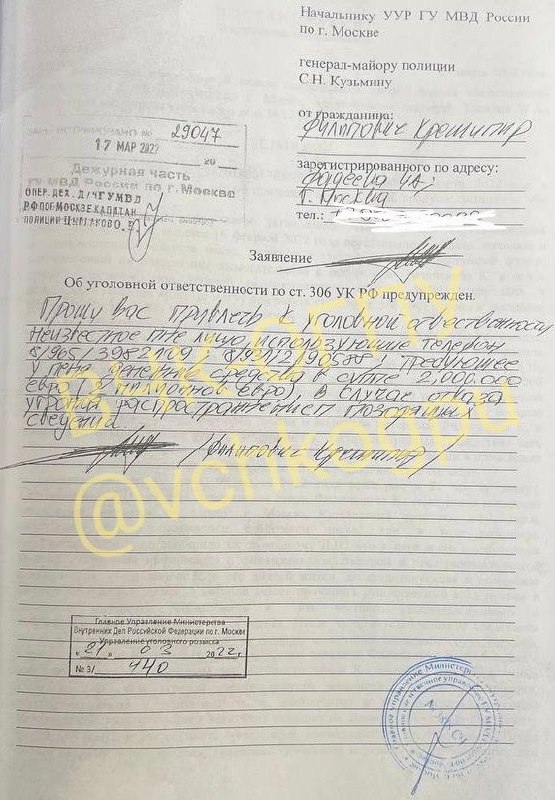 Начальнику УУР ГУ МВД России
по г. Москве
генерал-майору полиции
С.Н. Кузьмину
от гражданина:
Филипович Крешимир
зарегистрированного по адресу:
г. Москва
тел.:
№ 29047
17 МАР 2022
20
Дежурная часть
ГУ МВД России по г. Москве
ОПЕР. ДЕЖ. Д/Ч ГУ МВД
РФ ПО Г. МОСКВЕ КАПИТАН
ПОЛИЦИИ
Заявление
Об уголовной ответственности по ст. 306 УК РФ предупрежден.
Прошу Вас привлечь к уголовной ответственности
неизвестное мне лицо, использующее телефон
требующее
у меня денежные средства в сумме 2.000.000
евро (2 миллионов евро) в случае отказа
угрожая распространением позорящих
сведений
/Филипович Крешимир/
@vchkogpu
Главное Управление Министерства
Внутренних Дел Российской Федерации по г. Москве
Управление уголовного розыска
« 21 » 03 2022 г.
№ 3/ 440